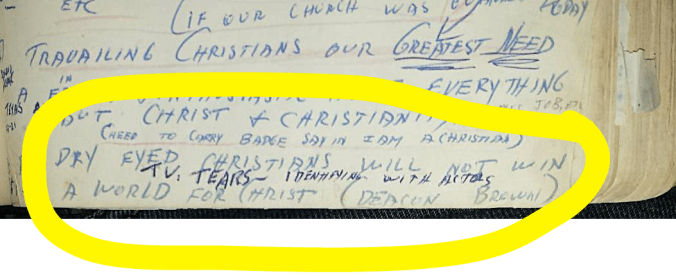 ETC (IF OUR CHURCH WAS TODAY
TRAVAILING CHRISTIANS OUR GREATEST NEED
IN
A EVERYTHING
BUT CHRIST & CHRISTIANITY JOB, ETC
(NEED TO CARRY BADGE SAYIN I AM A CHRISTIAN)
DRY EYED CHRISTIANS WILL NOT WIN
TV: TEARS - IDENTIFYING WITH ACTORS
A WORLD FOR CHRIST (DEACON BROWN)